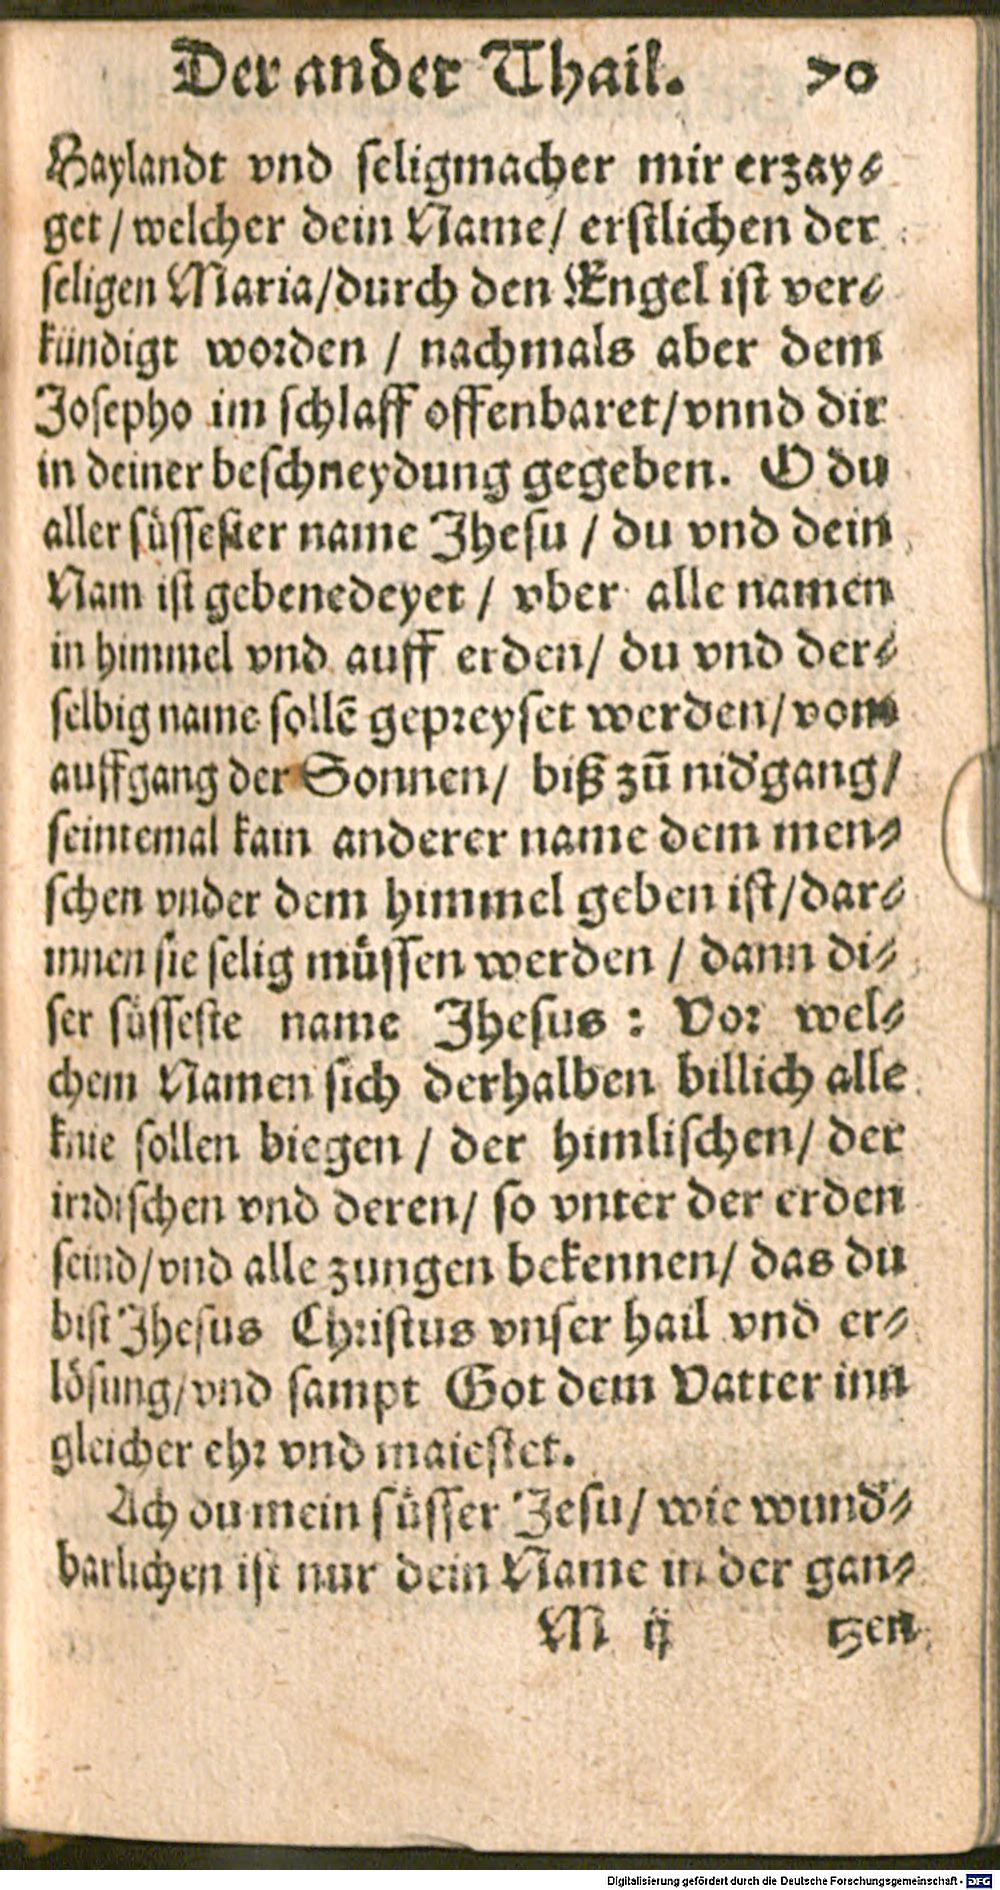 Der ander Thail. 70
Haylandt vnd seligmacher mir erzay⸗
get / welcher dein Name / erstlichen der
seligen Maria / durch den Engel ist ver⸗
kündigt worden / nachmals aber dem
Josepho im schlaff offenbaret / vnnd dir
in deiner beschneydung gegeben. O du
aller süssester name Jhesu / du vnd dein
Nam ist gebenedeyet / vber alle namen
in himmel vnd auff erden / du vnd der⸗
selbig name sollē gepreyset werden / vom
auffgang der Sonnen / biß zū nid'gang /
seintemal kain anderer name dem men⸗
schen vnder dem himmel geben ist / dar⸗
innen sie selig müssen werden / dann di⸗
ser süsseste name Jhesus : Vor wel⸗
chem Namen sich derhalben billich alle
knie sollen biegen / der himlischen / der
irrdischen vnd deren / so vnter der erden
seind / vnd alle zungen bekennen / das du
bist Jhesus Christus vnser hail vnd er⸗
lösung / vnd sampt Got dem Vatter inn
gleicher ehr vnd maiestet.
Ach du mein süsser Jesu / wie wund'⸗
barlichen ist nur dein Name in der gan⸗
M ij tzen
Digitalisierung gefördert durch die Deutsche Forschungsgemeinschaft - DFG